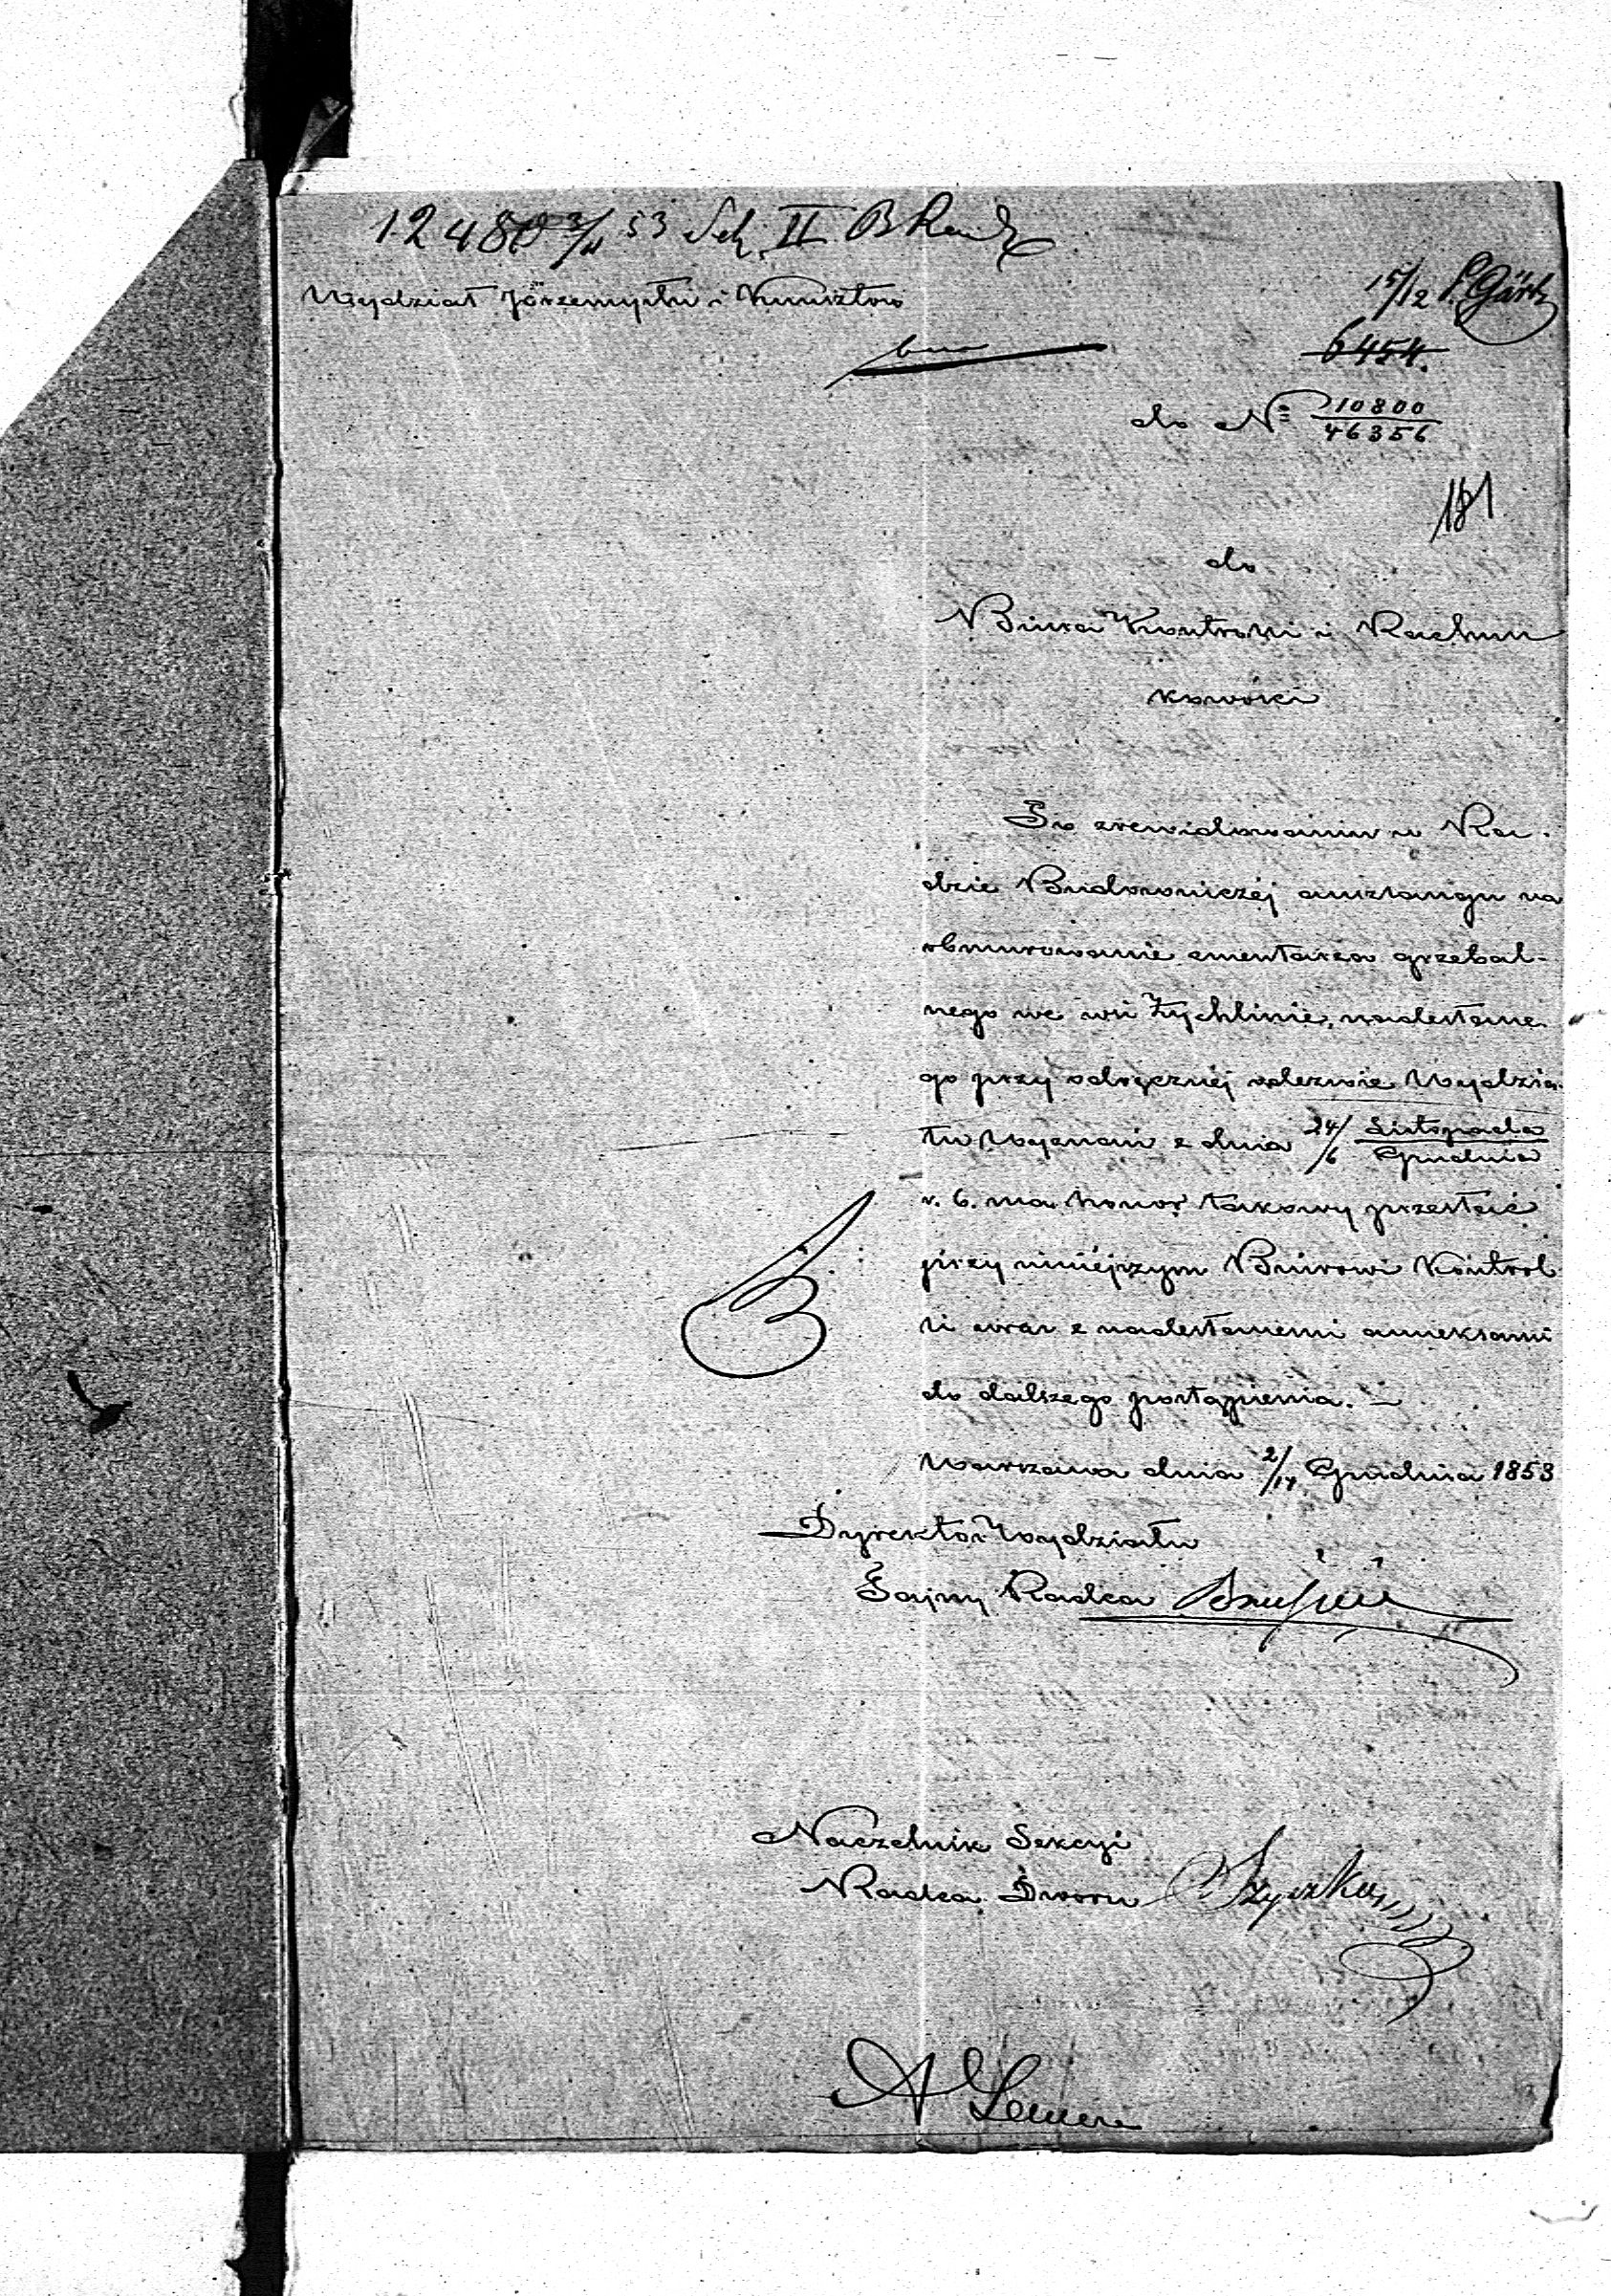 12480 3/11 53 Sek. II. B
Wydział Przemysłu i Kunsztów
15/12 P. Gärtz
6454.
do Nº 10800/46356
181
do
Biura Kontroli i Rachun
kowości
Po zrewidowaniu w Ra-
dzie Budowniczéj anszlangu na
obmurowanie cmentarza grzebal-
nego we wsi Żychlinie, nadesłane-
go przy odręcznéj odezwie Wydzia-
łu Wyznań z dnia 24/6 Listopada/Grudnia
r. b. ma honor takowy przesłać
przy niniéjszym Biurowi Kontrol
li wraz z nadesłanemi anneksami
do dalszego postąpienia. —
Warszawa dnia 2/14 Grudnia 1853
Dyrektor Wydziału
Tajny Radca
Naczelnik Sekcyi
Radca Dworu